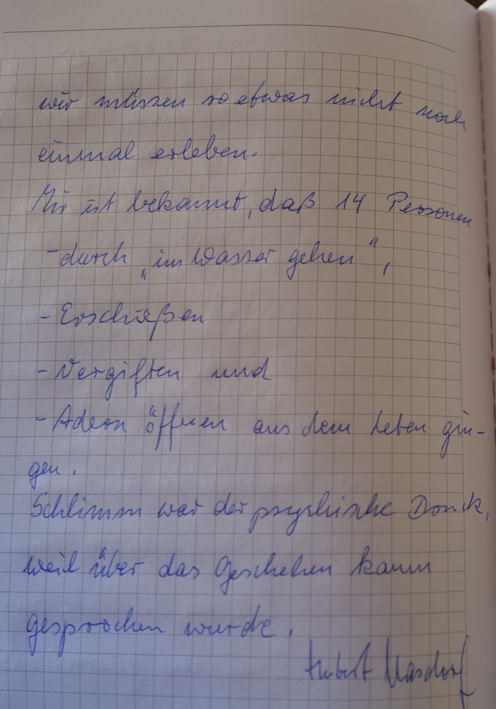 wir müssen so etwas nicht noch
einmal erleben.
Mir ist bekannt, daß 14 Personen
- durch „im Wasser gehen“,
- Erschießen
- Vergiften und
- Adern öffnen aus dem Leben gin-
gen.
Schlimm war der psychische Druck,
weil über das Geschehen kaum
gesprochen wurde.
Hubert